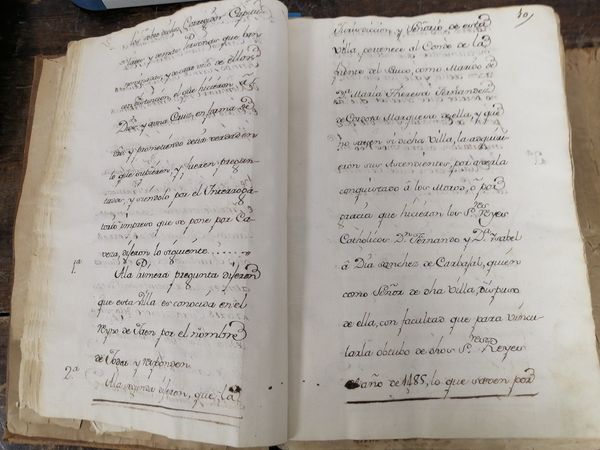 y demas personas que han
y de cada uno de ellos
el que hicieron p.r
Dios, y a una Cruz, en forma de
y prometido decir verdad en
lo que supieren, y fueren pregun-
tados, y siendolo por el Interroga-
torio impreso que se pone por Ca-
veza, dijeron lo siguiente
1ª A la primera pregunta dijeron
que esta Villa es conocida en el
Reyno de Jaen por el nombre
de Jodar y responden
2ª A la segunda dijeron, que la
40
Jurisdiccion y Señorio de esta
Villa, pertenece al Conde de la
Puente del Sauco, como Marido de
Dª Maria Theresa Fernandez
de Cordova Marquesa de ella, y que
no saven si dicha Villa, la adquiri-
eron sus Ascendientes, por averla
conquistado â los Moros, ô por
gracia que hicieron los Sres Reyes
Catholicos Dn Fernando y Dª Ysabel
â Dia Sanchez de Carbajal, quien
como Señor de dha Villa, dispuso
de ella, con facultad que para vincu-
larla obtubo de dhos Sres Reyes
el año de 1485, lo que saven por